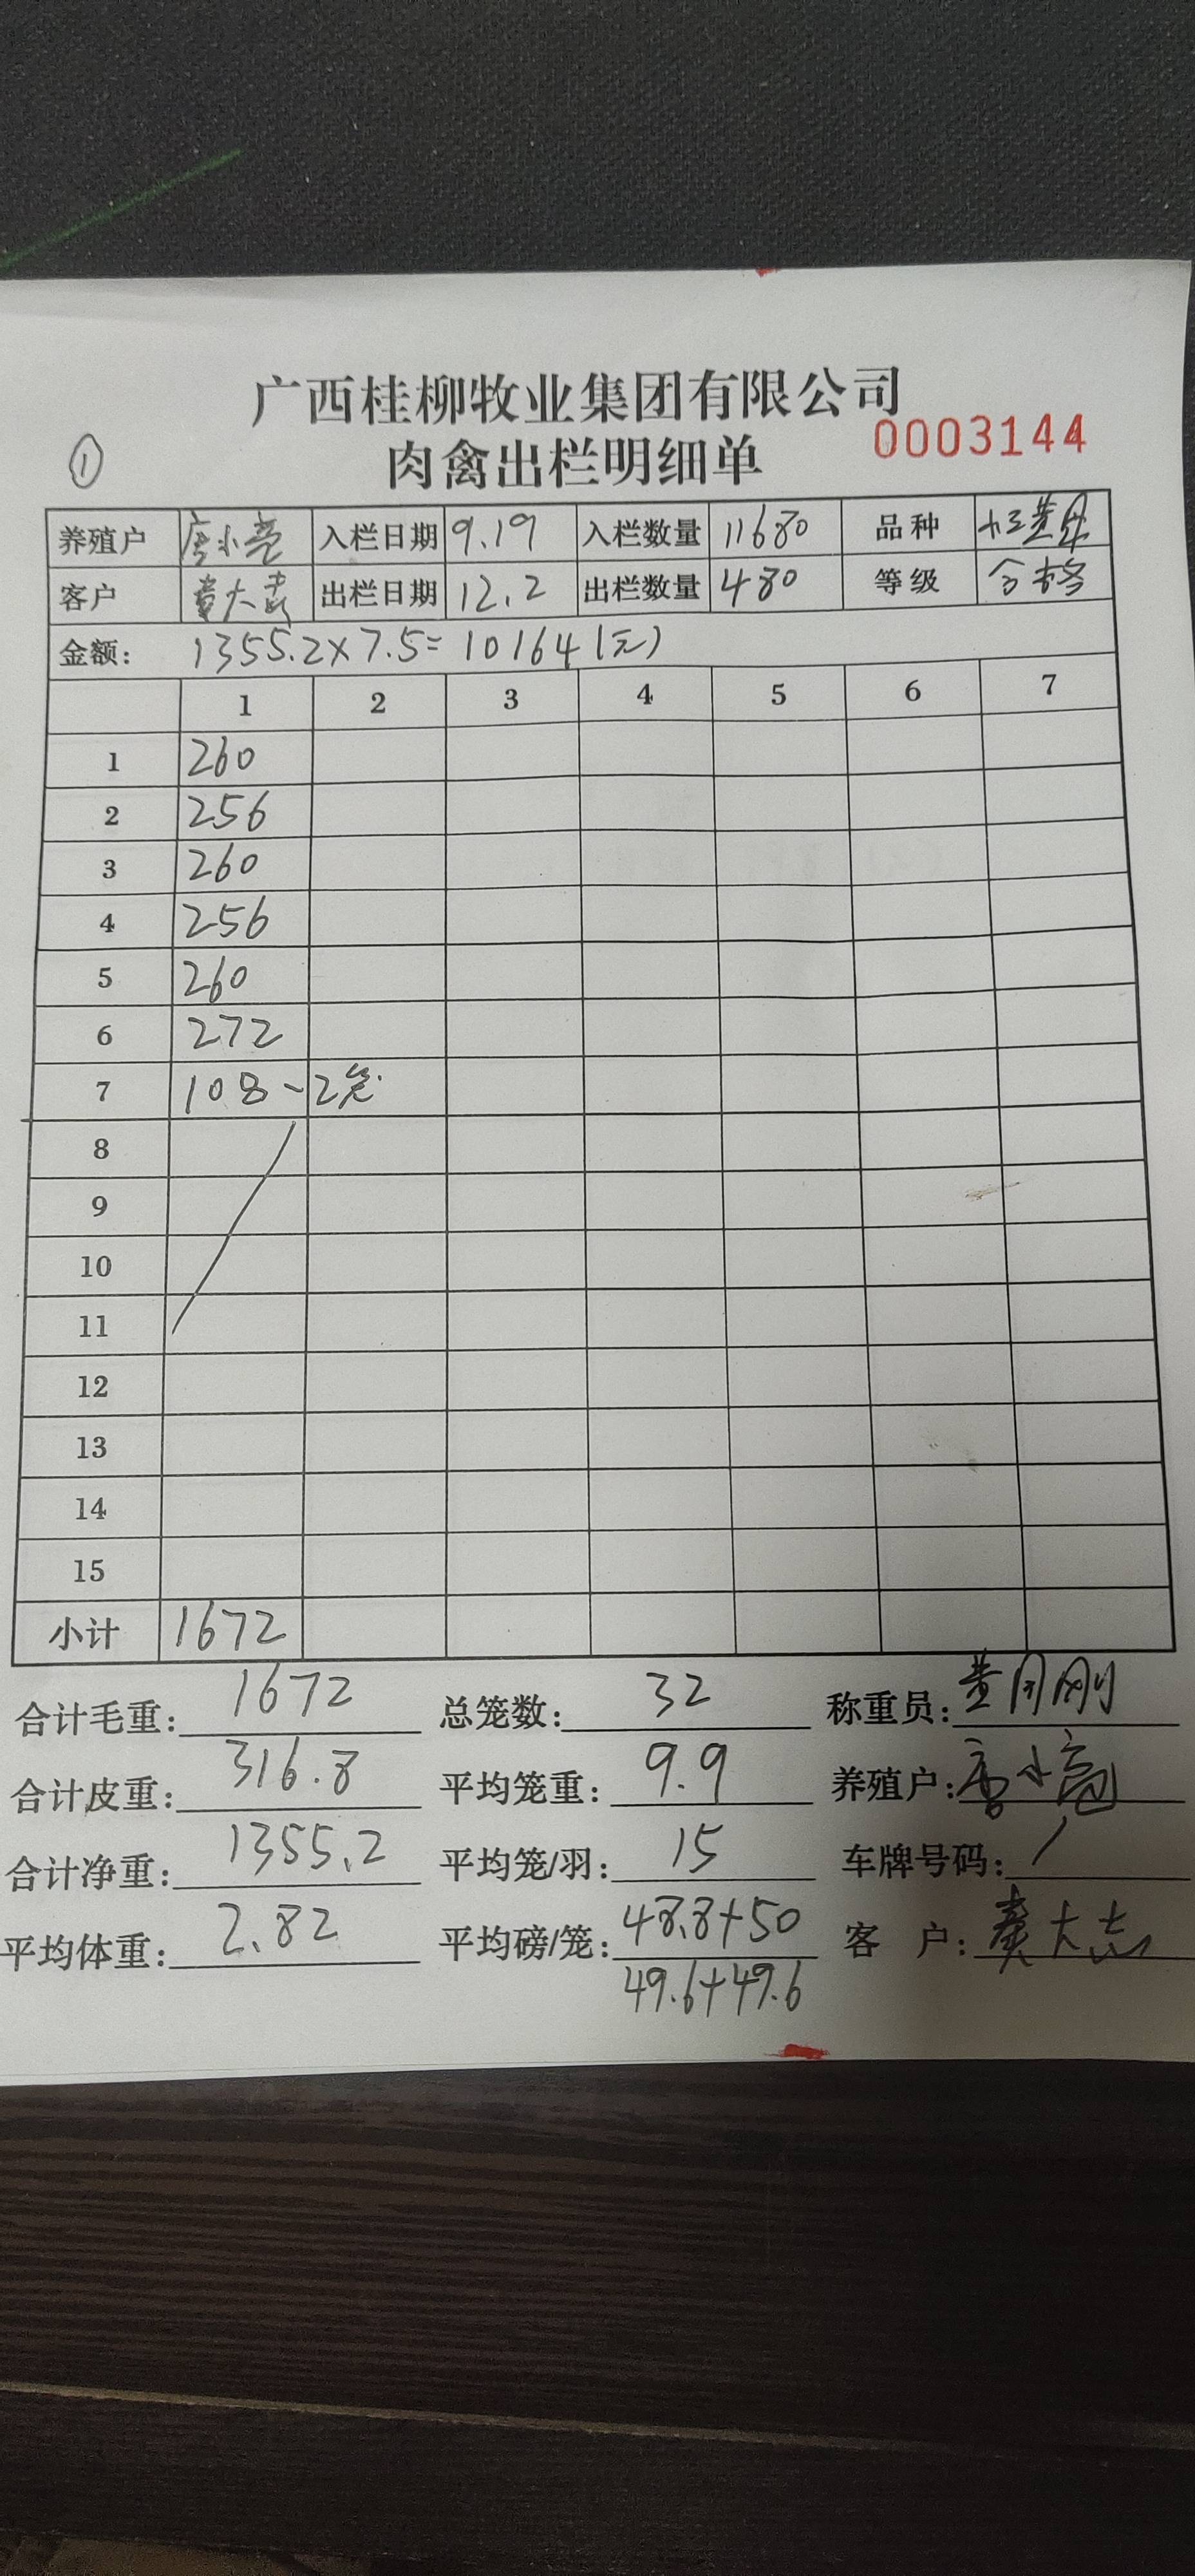 广西桂柳牧业集团有限公司
① 肉禽出栏明细单 0003144
养殖户 唐小亮 入栏日期 9.19 入栏数量 11680 品种
客户 大志 出栏日期 12.2 出栏数量 480 等级 合格
金额: 1355.2×7.5=10164(元)
1 2 3 4 5 6 7
1 260
2 256
3 260
4 256
5 260
6 272
7 108-2笼
8
9
10
11
12
13
14
15
小计 1672
合计毛重: 1672 总笼数: 32 称重员: 黄 刚
合计皮重: 316.8 平均笼重: 9.9 养殖户: 唐小亮
合计净重: 1355.2 平均笼/羽: 15 车牌号码: /
平均体重: 2.82 平均磅/笼: 48.8+50 客 户: 大志
49.6+49.6